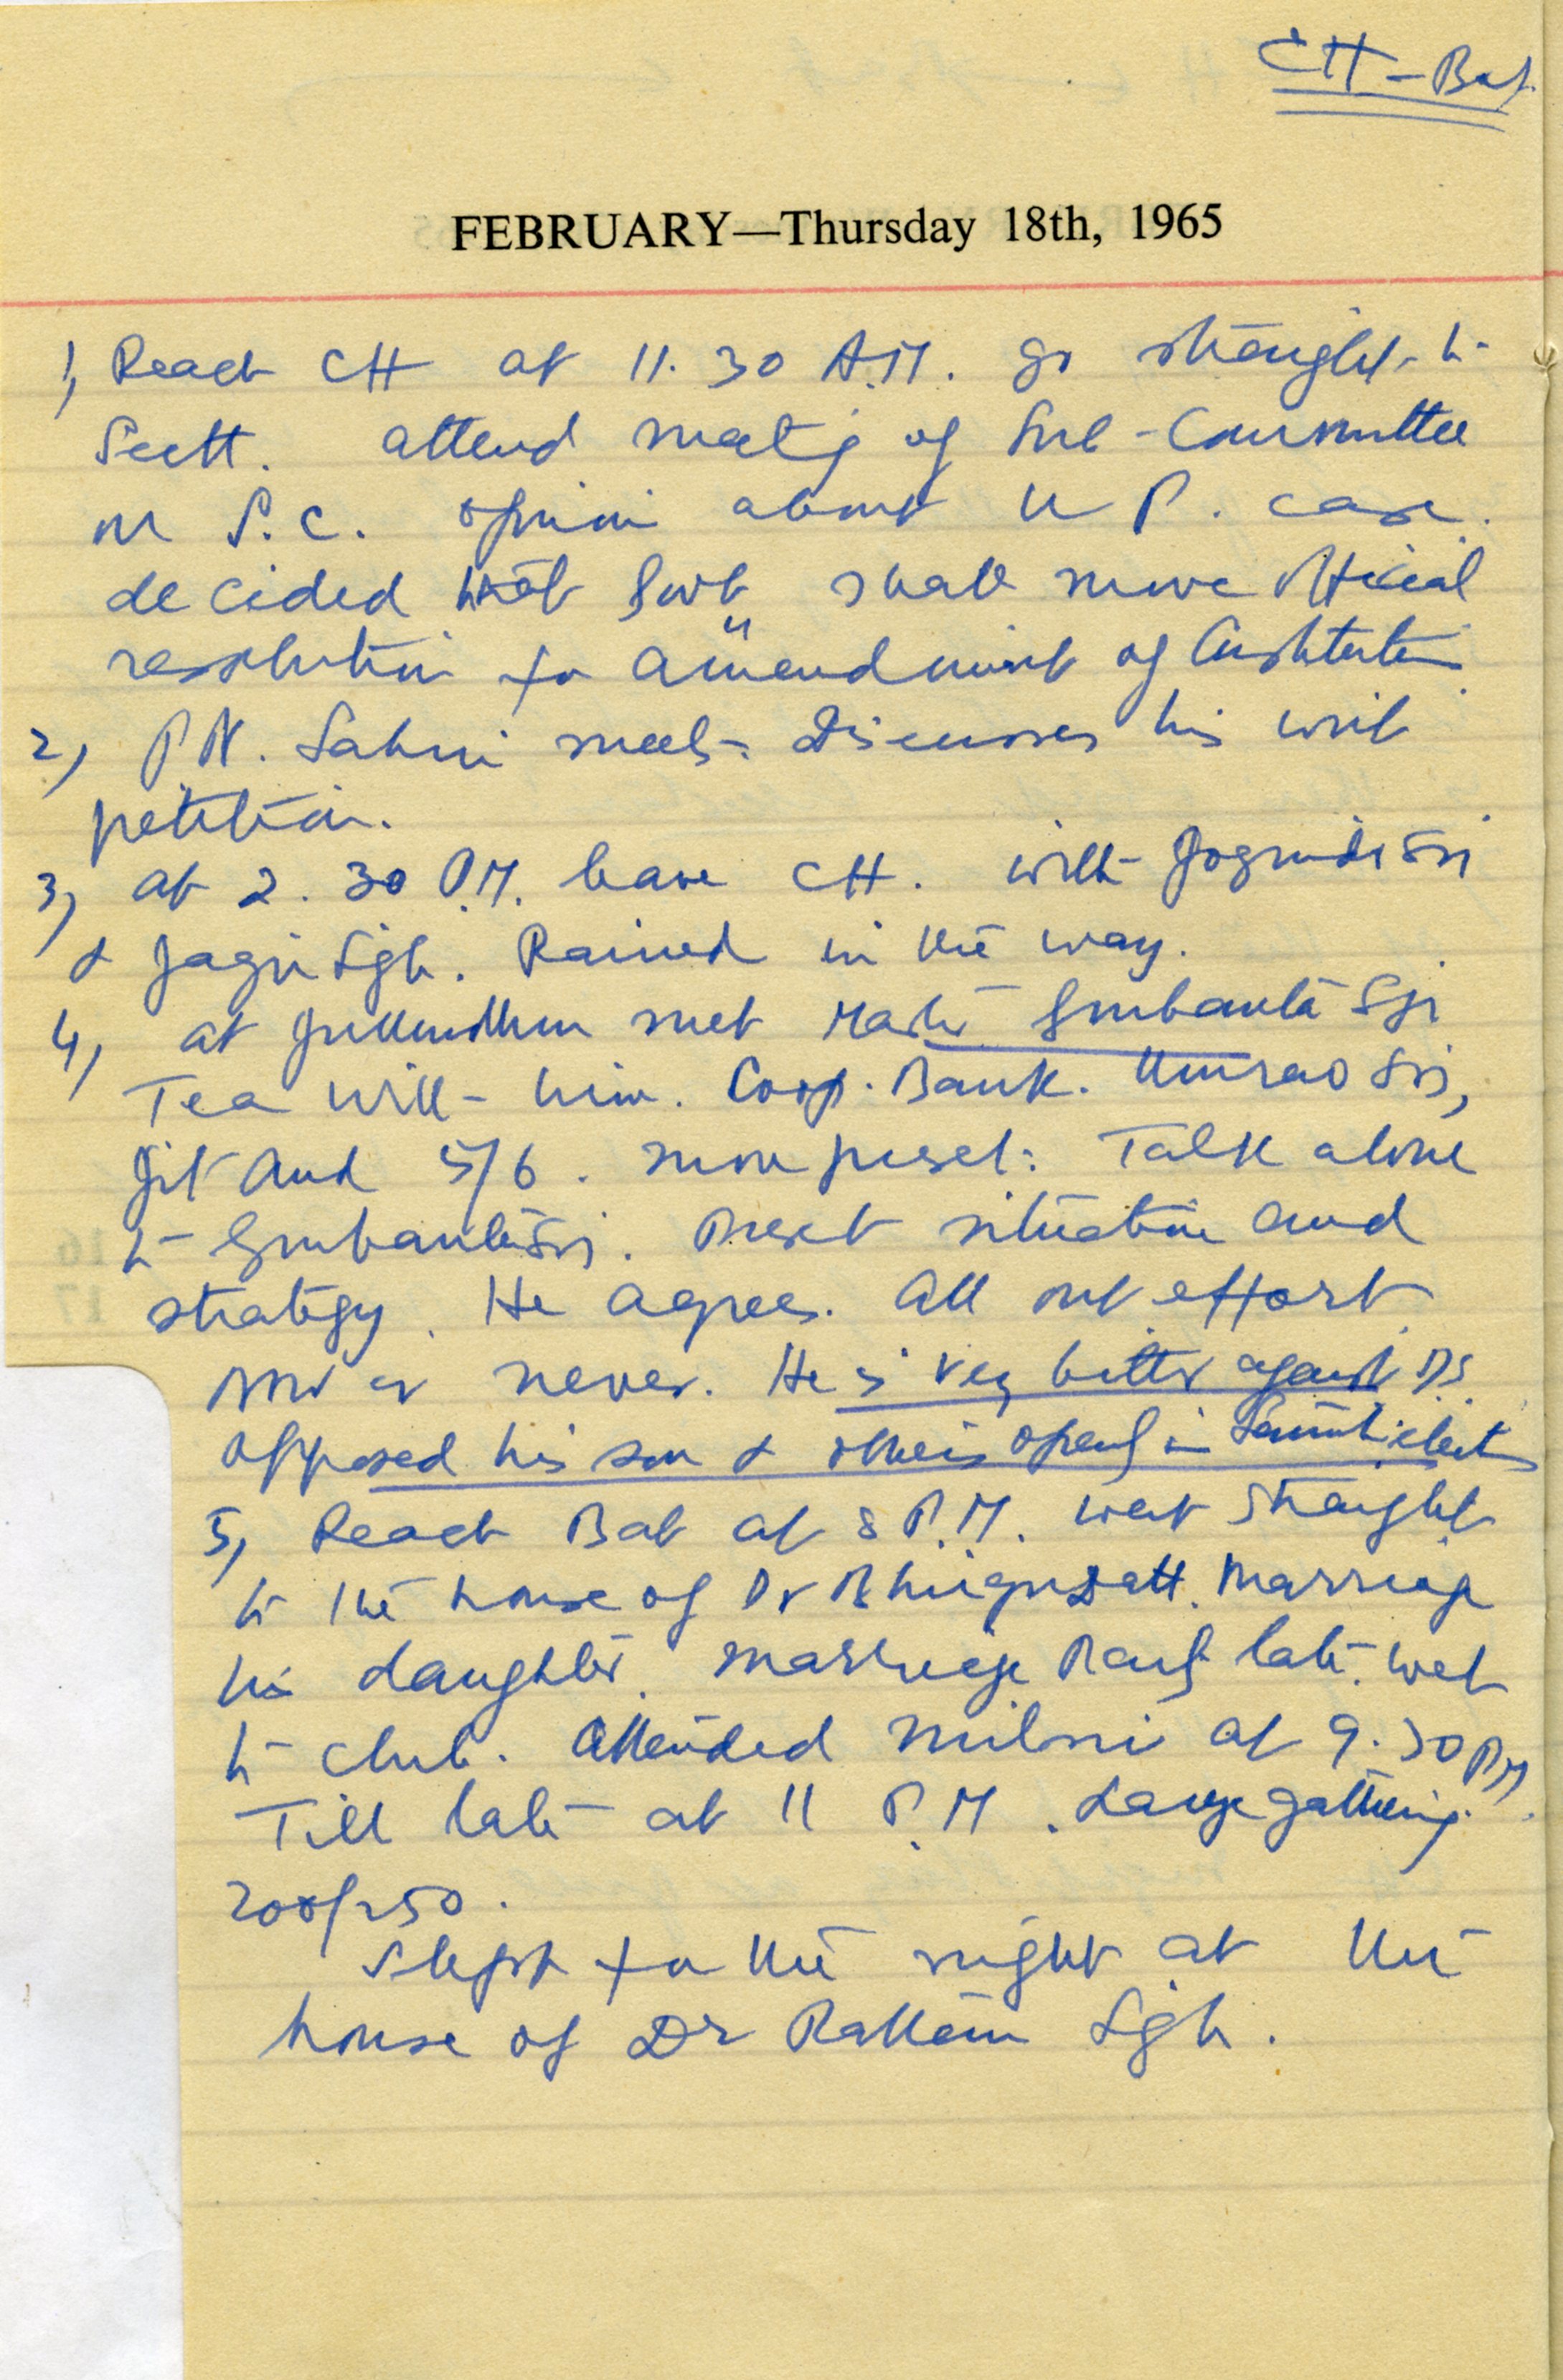 CH - Bat.
FEBRUARY—Thursday 18th, 1965
1, Reach CH at 11.30 A.M. go straight to
Sectt. attend meetg of Sub-Committee
on S.C. opinion about U P. case.
decided that Govt shall move official
resolution for amendment of Constitution
2, P N. Sahni meets. Discusses his writ
petition.
3, at 2.30 P.M. leave CH. with
& Jagir Sgh. Rained in the way.
4, at Jullundhur met Master Gurbanta Sgh
Tea with him. Coop. Bank. Umrao Sgh,
Jit and 5/6. more present: Talk alone
to Gurbanta Sgh. Present situation and
strategy. He agrees. All out effort
now or never. He is very bitter against DS.
opposed his son & others openly in Samiti elections
5, Reach Bat at 8 P.M. went straight
to the house of Dr Datt. marriage
his daughter. marriage Party late. went
to club. Attended milni at 9.30 PM
Till late at 11 P.M. Large gathering.
200/250.
Slept for the night at the
house of Dr Rattan Sgh.